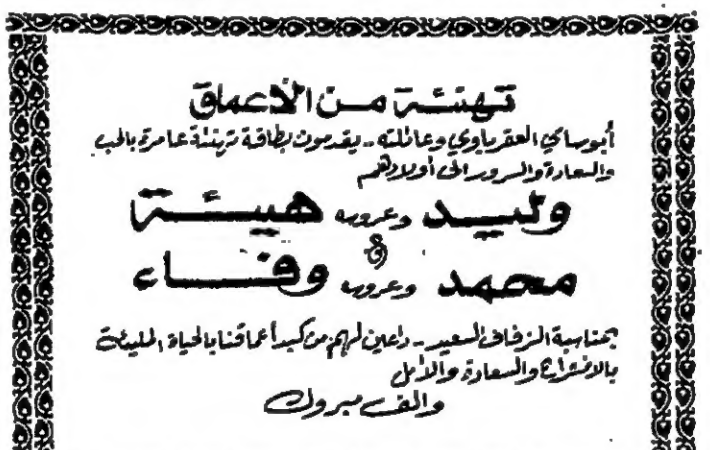 تهنئة من الأعماق
أبو سامي العقرباوي وعائلته .. يقدمون بطاقة تهنئة عامرة بالحب
والسعادة والسرور الى أولادهم
وليد وعروسه هيئة
و
محمد وعروسه وفاء
بمناسبة الزفاف السعيد .. داعين لهم من كبد أعماقنا بالحياة المليئة
بالانشراح والسعادة والأمل
والف مبروك